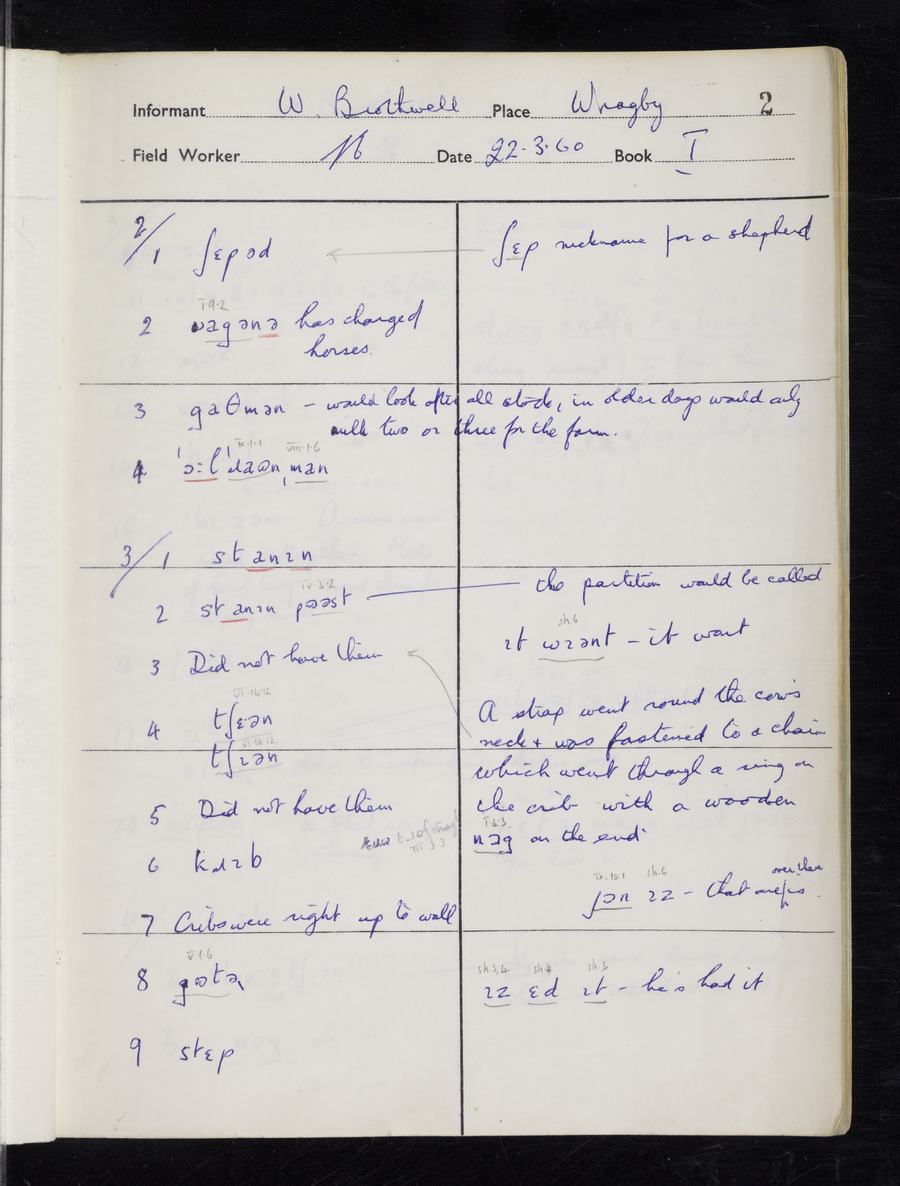 Informant W. Brothwell Place Wragby 2
Field Worker Date 22.3.60 Book I
2/1 ʃɛpəd
ʃɛp nickname for a shepherd
I.9.2
2 wagənə has charged
horses.
3 gaθmən – would look after all stock, in older days would only
milk two or three for the farm.
IX.1.1 VIII.1.6
4 ˈɔːlˈɹaʊn ˌman
3/1 stanɪn
the partition would be called
IV.3.2
2 stanɪn pɔəst
sh.6
ɪt wɪənt – it want
3 Did not have them
VI.14.12
4 tʃɛən
VI.14.12
tʃɪən
A strap went round the cow's
neck & was fastened to a chain
which went through a ring on
the crib with a wooden
I.4.3
nəg on the end
5 Did not have them
III.3.3
6 kɹɪb
IX.10.1 sh.6 over there
jɔn ɪz – that one is
7 Cribs were right up to wall
V.1.6
8 gɔtə
sh.3,4 sh.4 sh.3
ɪz ɛd ɪt – he's had it
9 stɛp